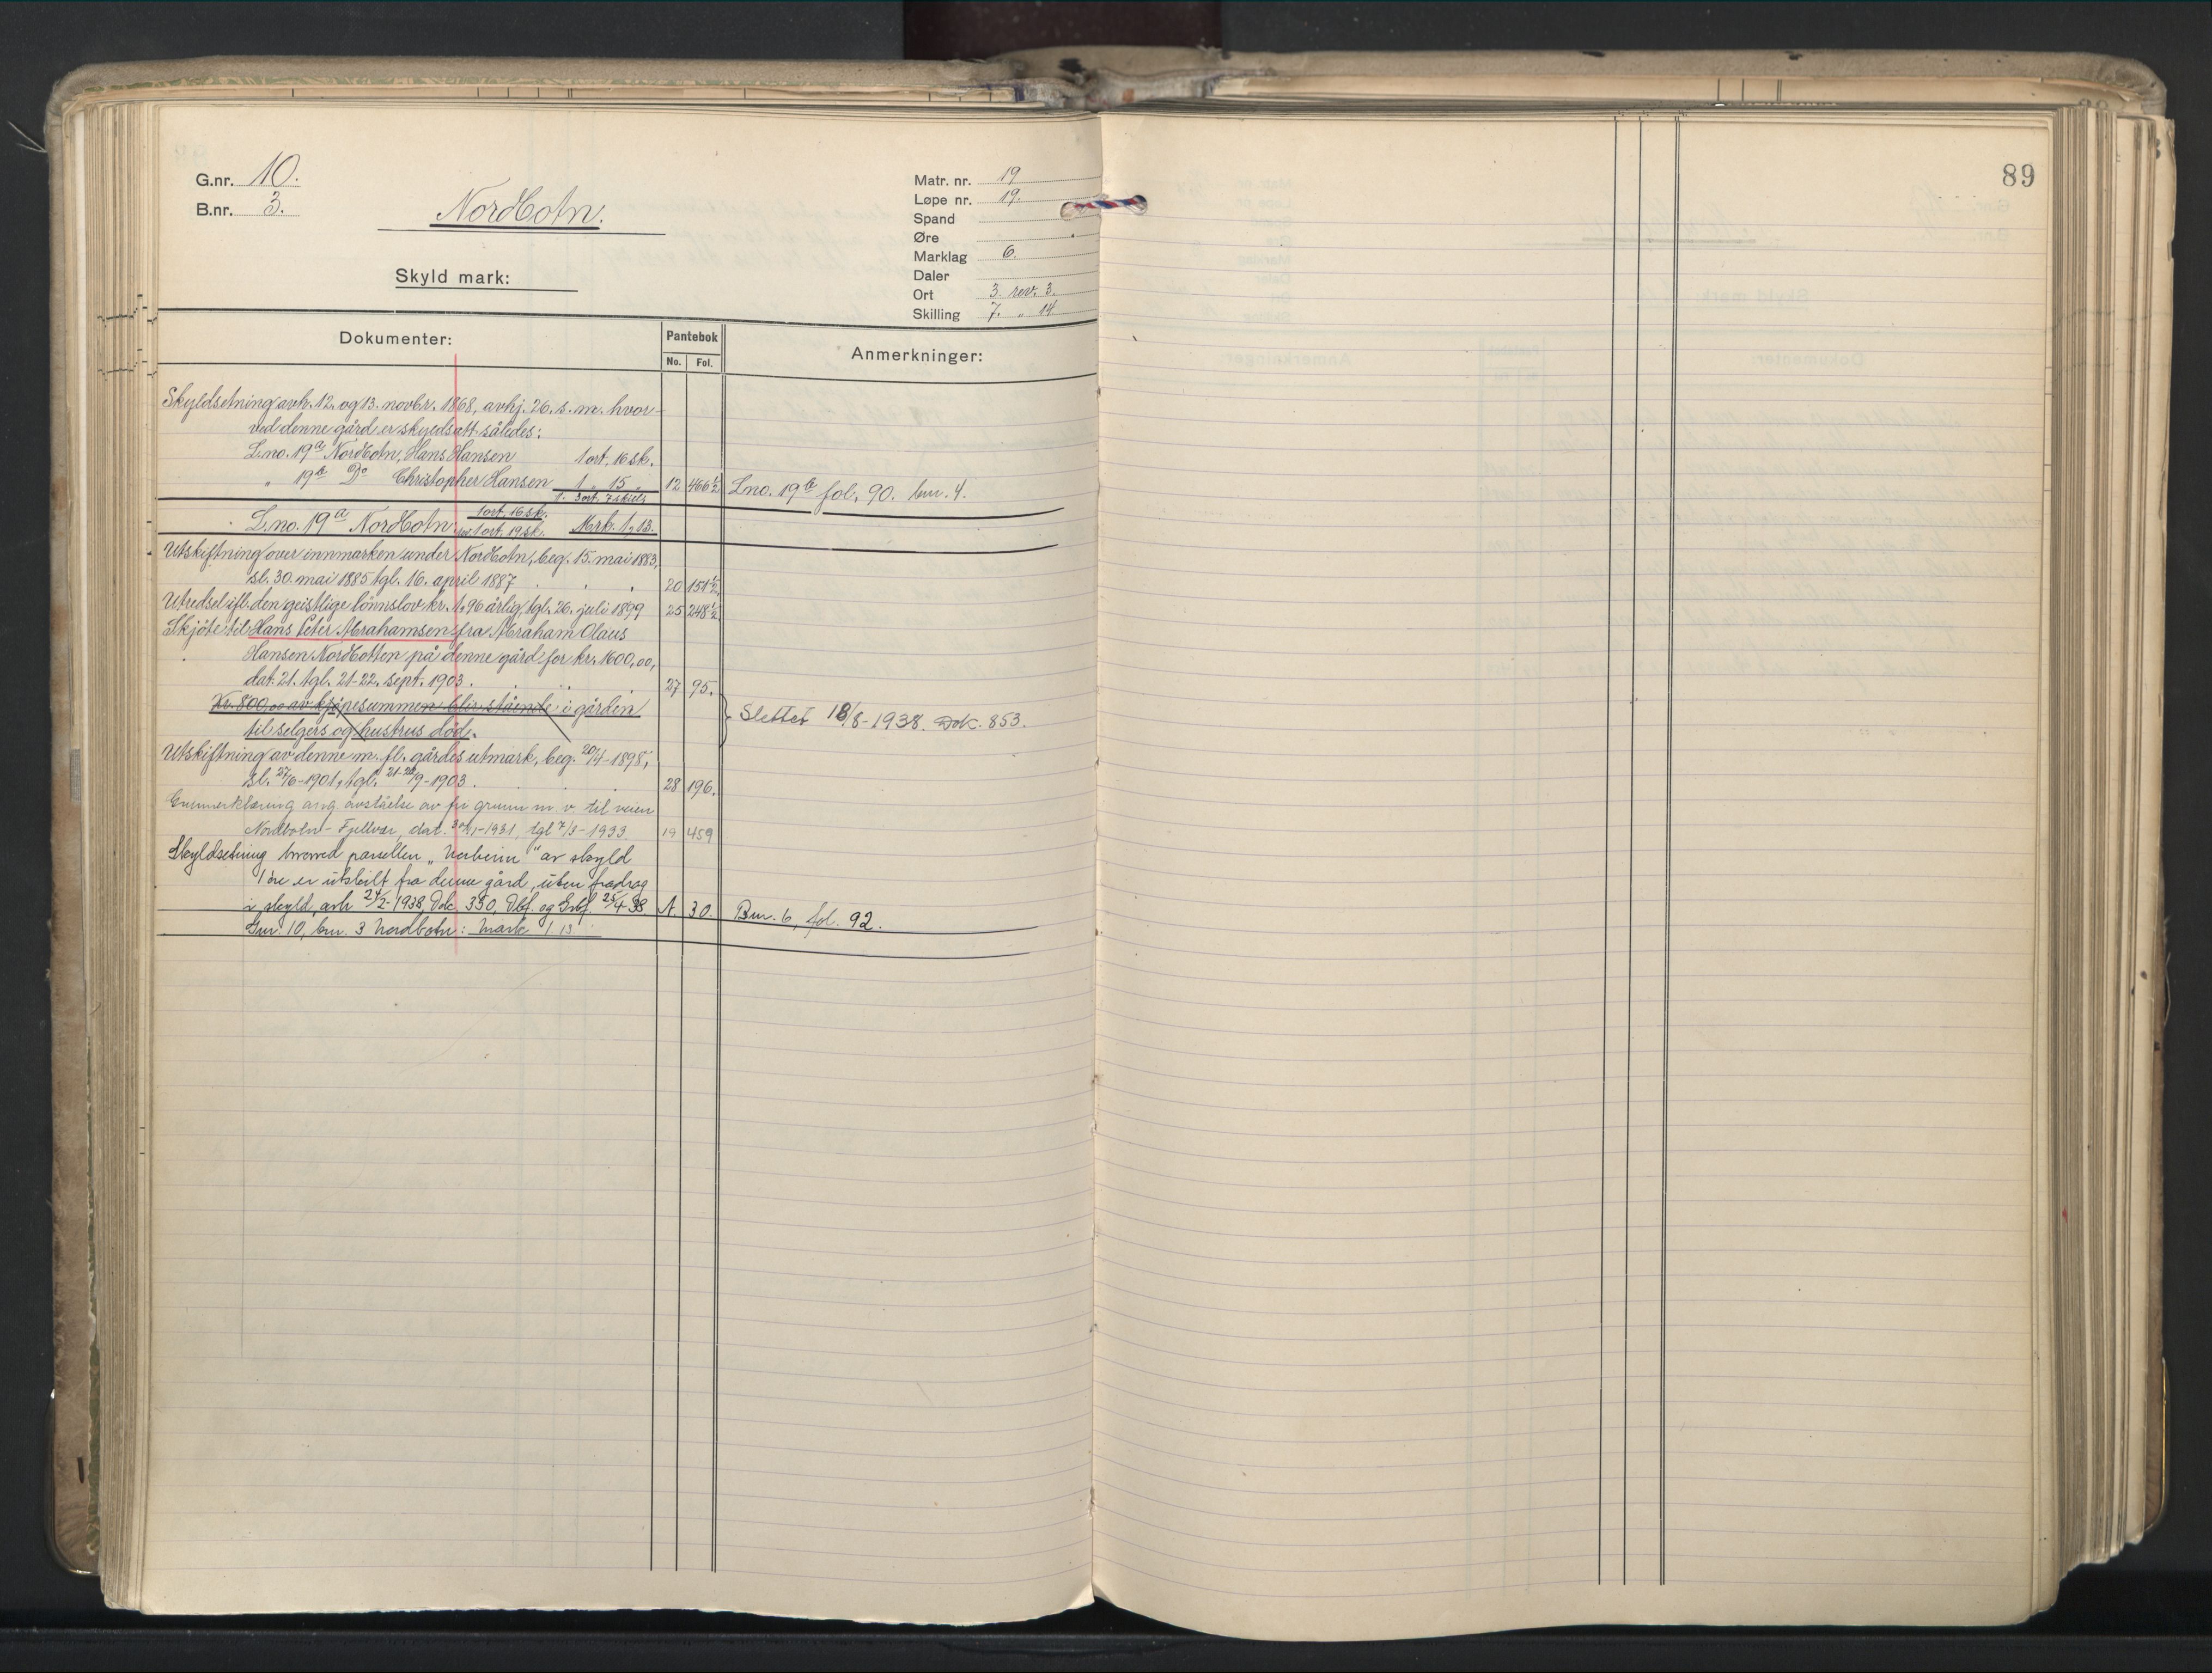 89
G.nr. 10.
B.nr. 3.
Nordbotn.
Skyld mark:
Matr. nr. 19
Løpe nr. 19.
Spand
Øre
Marklag 6.
Daler
Ort 3. rev. 3.
Skilling 7. " 14
Dokumenter:
Pantebok
No. Fol.
Anmerkninger:
Skyldsetning avh. 12. og 13. novbr. 1868, avhj. 26. s. m. hvor-
ved denne gård er skyldsatt således:
L.no. 19a Nordbotn, Hans Hansen 1 ort, 16 sk.
" 19b Do Christopher Hansen 1 " 15 " 12 466½ Lno. 19b fol. 90. bnr. 4.
3 ort. 7 skill.
L.no. 19a Nordbotn, 1 ort, 16 sk.
rev. 1 ort. 19 sk. Mrk. 1,13.
Utskiftning over innmarken under Nordbotn, beg. 15. mai 1883,
sl. 30. mai 1885 tgl. 16. april 1887. 20 151½
Utredsel ifl. den geistlige lønnslov kr. 1,96 årlig, tgl. 26. juli 1899 25 248½
Skjöte til Hans Peter Abrahamsen fra Abraham Olaus
Hansen Nordbotten på denne gård for kr. 1600,00,
dat. 21. tgl. 21-22. sept. 1903. 27 95.
Kr. 800,00 av kjøpesummen blir stående i gården
til selgers og hustrus död.
Slettet 18/8-1938. Dok. 853.
Utskiftning av denne m. fl. gårdes utmark, beg. 20/4-1898,
sl. 27/6-1901, tgl. 21-22/9-1903. 28 196.
Grunnerklæring ang. avståelse av fri grunn m. v. til veien
Nordbotn - Fjellvær, dat. 30/1-1931, tgl 7/3-1933. 19 459
Skyldsetning hvorved parsellen " " av skyld
1 øre er utskilt fra denne gård, uten fradrag
i skyld, avh 24/2-1938, Dok 350, Dbf. og Grbf. 25/4 38 A. 30. Bnr. 6, fol. 92.
Gnr. 10, bnr. 3 Nordbotn: mark 1 13